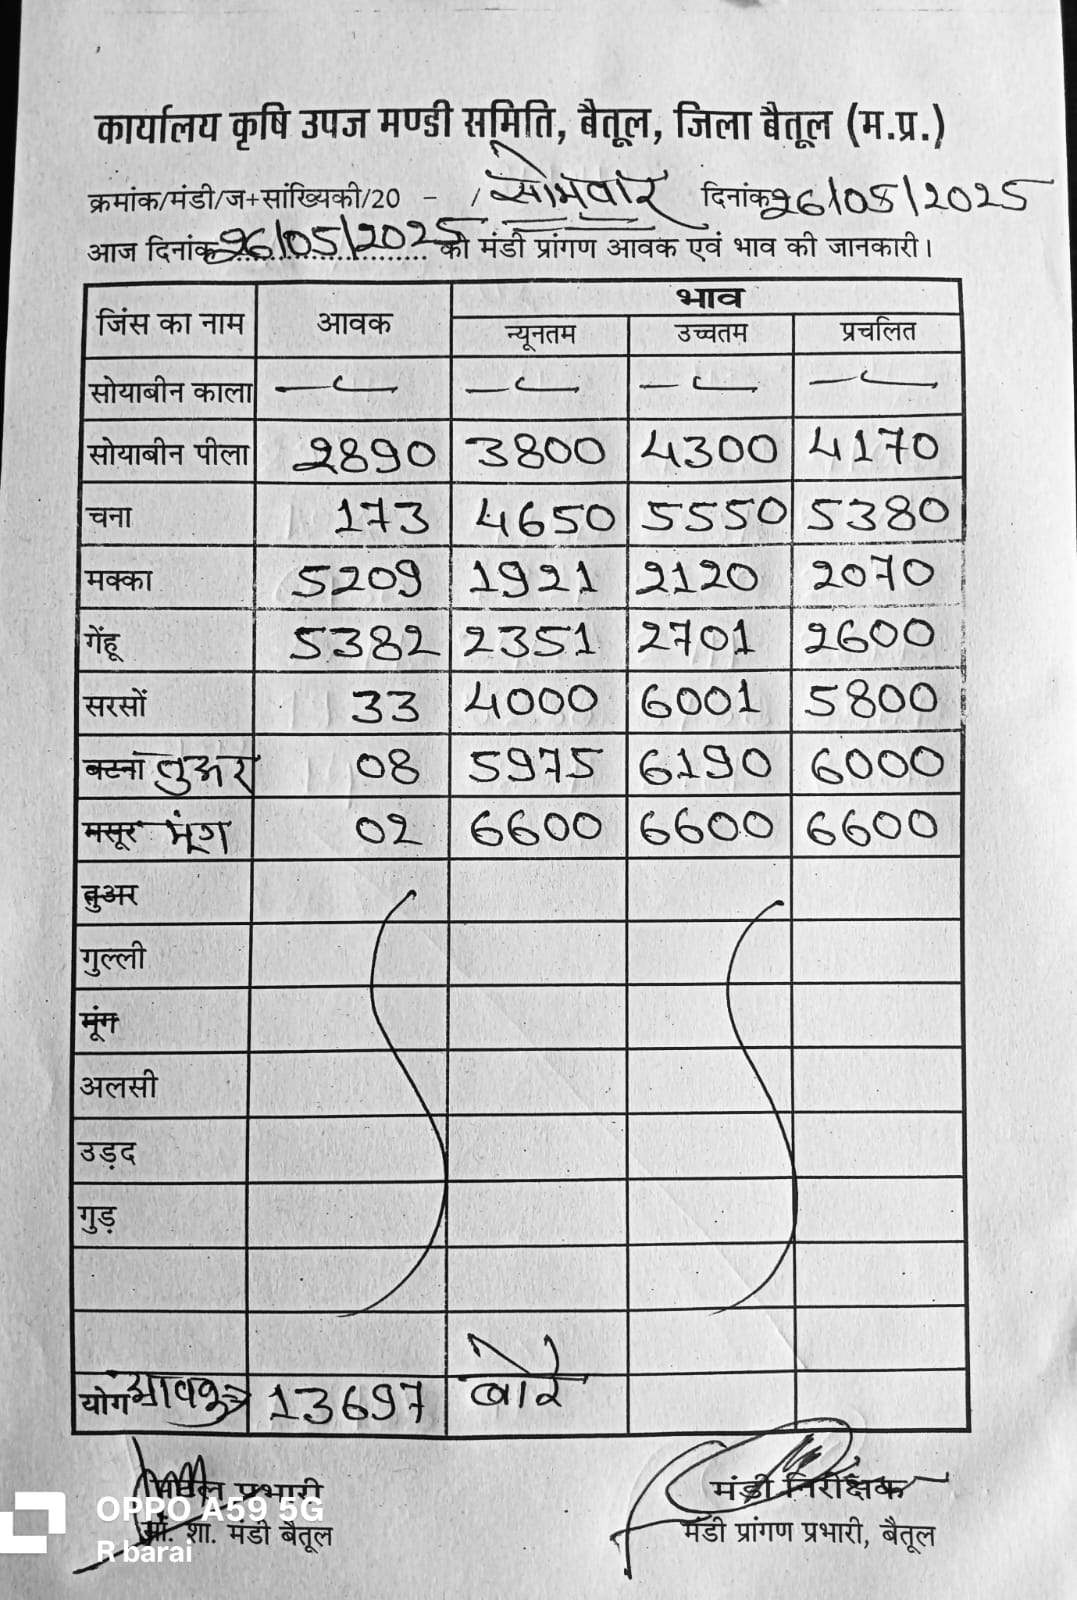 कार्यालय कृषि उपज मण्डी समिति, बैतूल, जिला बैतूल (म.प्र.)
क्रमांक/मंडी/ज+सांख्यिकी/20 - / सोमवार दिनांक 26/05/2025
आज दिनांक 26/05/2025 को मंडी प्रांगण आवक एवं भाव की जानकारी।
जिंस का नाम आवक भाव
न्यूनतम उच्चतम प्रचलित
सोयाबीन काला
सोयाबीन पीला 2890 3800 4300 4170
चना 173 4650 5550 5380
मक्का 5209 1921 2120 2070
गेंहू 5382 2351 2701 2600
सरसों 33 4000 6001 5800
बटना तुअर 08 5975 6190 6000
मसूर मूंग 02 6600 6600 6600
तुअर
गुल्ली
मूंग
अलसी
उड़द
गुड़
योग आवक 13697 बोरे
प्रभारी मंडी निरीक्षक
प्रां. शा. मंडी बैतूल मंडी प्रांगण प्रभारी, बैतूल
OPPO A59 5G
R barai